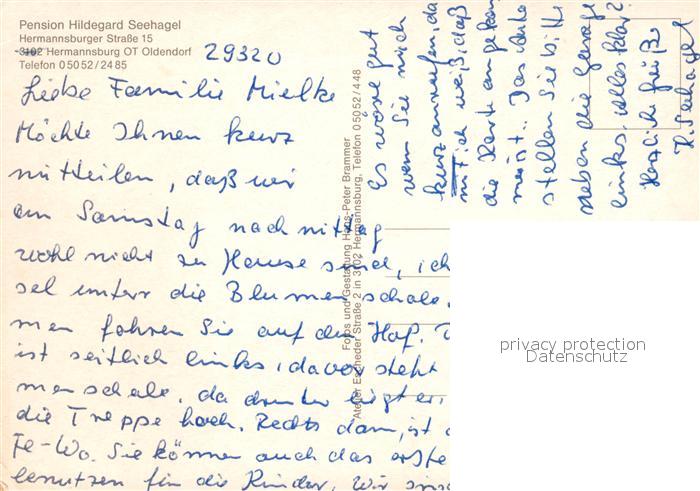 Pension Hildegard Seehagel
Hermannsburger Straße 15
3102 Hermannsburg OT Oldendorf
Telefon 05052/2485
29320
Liebe Familie Mielke
Möchte Ihnen kurz
mitteilen, daß wir
am Samstag nachmittag
wohl nicht zu Hause sind, ich
sel unterr die Blumenschale.
men fahren Sie auf den Hof.
ist seitlich links, davor steht
menschale, da drunter liegt er,
die Treppe hoch. Rechts dann, ist
Fe-Wo. Sie können auch das erste
benutzen für die Kinder, Wir sind
Es wäre gut
wenn Sie mich
kurz anrufen, da
mit ich weiß, daß
die Karte angekom
men ist. Das Auto
stellen Sie bitte
neben die Garage
links, alles klar?
Herzliche Grüße
H. Seehagel
Fotos und Gestaltung Hans-Peter Brammer
Atelier Escheder Straße 2 in 3102 Hermannsburg, Telefon 05052/448
privacy protection
Datenschutz